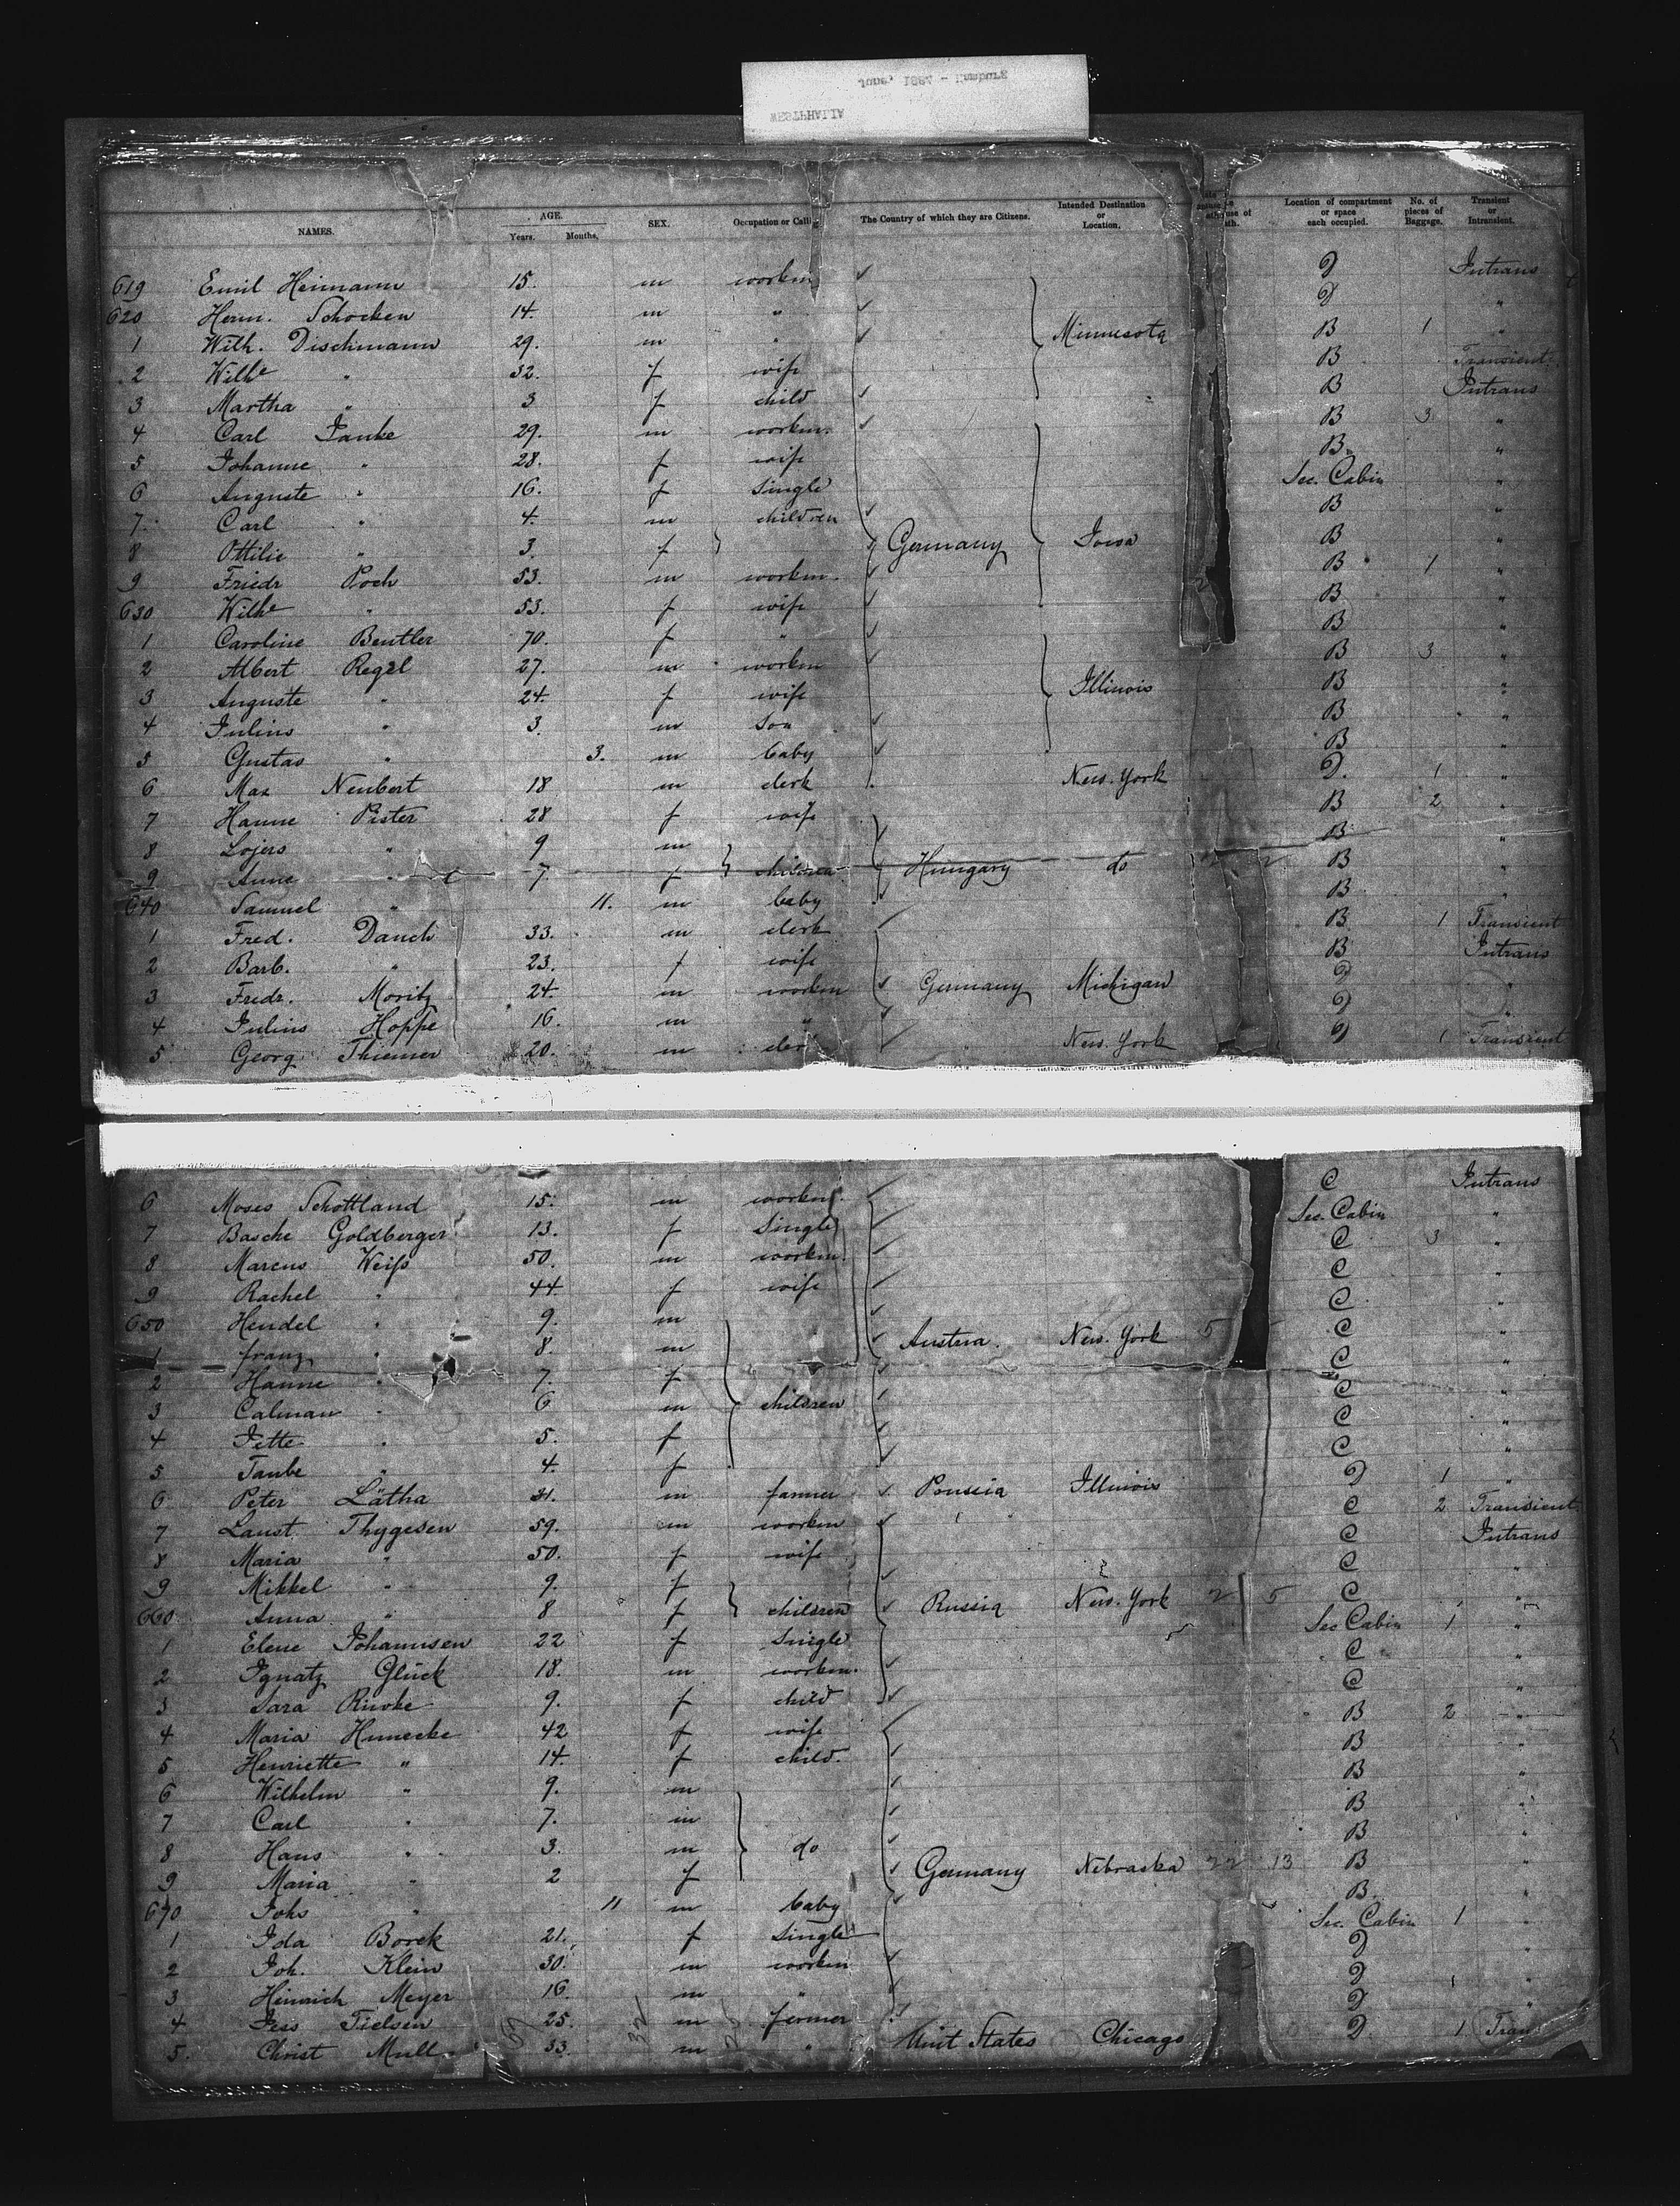 WESTPHALIA
June, 1887 - Hamburg
NAMES. AGE. Years. Months. SEX. Occupation or Calling The Country of which they are Citizens. Intended Destination or Location. Location of compartment or space each occupied. No. of pieces of Baggage. Transient or Intransient.
619 Emil Heimann 15. m workm D Intrans
620 Herm. Schocken 14. m " D "
1 Wilh. Dischmann 29. m " Minnesota B 1 "
2 Wilhe " 32. f wife B Transient
3 Martha " 3 f child B Intrans
4 Carl Janke 29. m workm. B 3 "
5 Johanne " 28. f wife B "
6 Auguste " 16. f Single Sec. Cabin "
7. Carl " 4. m children B "
8 Ottilie " 3. f Germany Iowa B "
9 Friedr Poch 53. m workm. B 1 "
630 Wilhe " 53. f wife B "
1 Caroline Beutler 70. f " B "
2 Albert Regel 27. m workm B 3 "
3 Auguste " 24. f wife Illinois B "
4 Julius " 3. m Son B "
5 Gustav " 3. m baby B "
6 Max Neubert 18 m clerk New-York D. 1 "
7 Hanne Pister 28 f wife B 2 "
8 Lojers " 9 m B "
9 Anne " 7 f children Hungary do B "
640 Samuel " 11. m baby B "
1 Fred. Dauch 33. m clerk B 1 Transient
2 Barb. " 23. f wife B Intrans
3 Fredr. Moritz 24. m workm Germany Michigan D "
4 Julius Hoppe 16. m " D "
5 Georg Thiemer 20. m cler New-York D 1 Transient
6 Moses Schottland 15. m workm. C Intrans
7 Basche Goldberger 13. f Single Sec. Cabin "
8 Marcus Weiss 50. m workm. C 3 "
9 Rachel " 44 f wife C "
650 Hendel " 9. m C "
1 franz " 8. m Austria. New-York 5 C "
2 Hanne " 7. f C "
3 Calman " 6 m children C "
4 Jette " 5. f C "
5 Taube " 4. f C "
6 Peter Lätha 31. m farmer Prussia Illinois D 1 "
7 Laust Thygesen 59. m workm C 2 Transient
8 Maria " 50. f wife C Intrans
9 Mikkel " 9. f C "
660 Anna " 8 f children Russia New-York 2 5 C "
1 Elene Johannsen 22 f Single Sec Cabin 1 "
2 Ignatz Glück 18. m workm. C "
3 Sara Rivke 9. f child C "
4 Maria Hunecke 42 f wife B 2 "
5 Henriette " 14. f child. B "
6 Wilhelm " 9. m B "
7 Carl " 7. m B "
8 Hans " 3. m do B "
9 Maria " 2 f Germany Nebraska 22 13 B "
670 Johs " 11 m baby B "
1 Ida Borek 21. f Single Sec. Cabin 1 "
2 Joh. Klein 30. m workm D "
3 Heinrich Meyer 16. m " D 1 "
4 Jess Tielsen 25. m farmer D "
5. Christ Mull 33. m " Unit States Chicago D 1 Tran